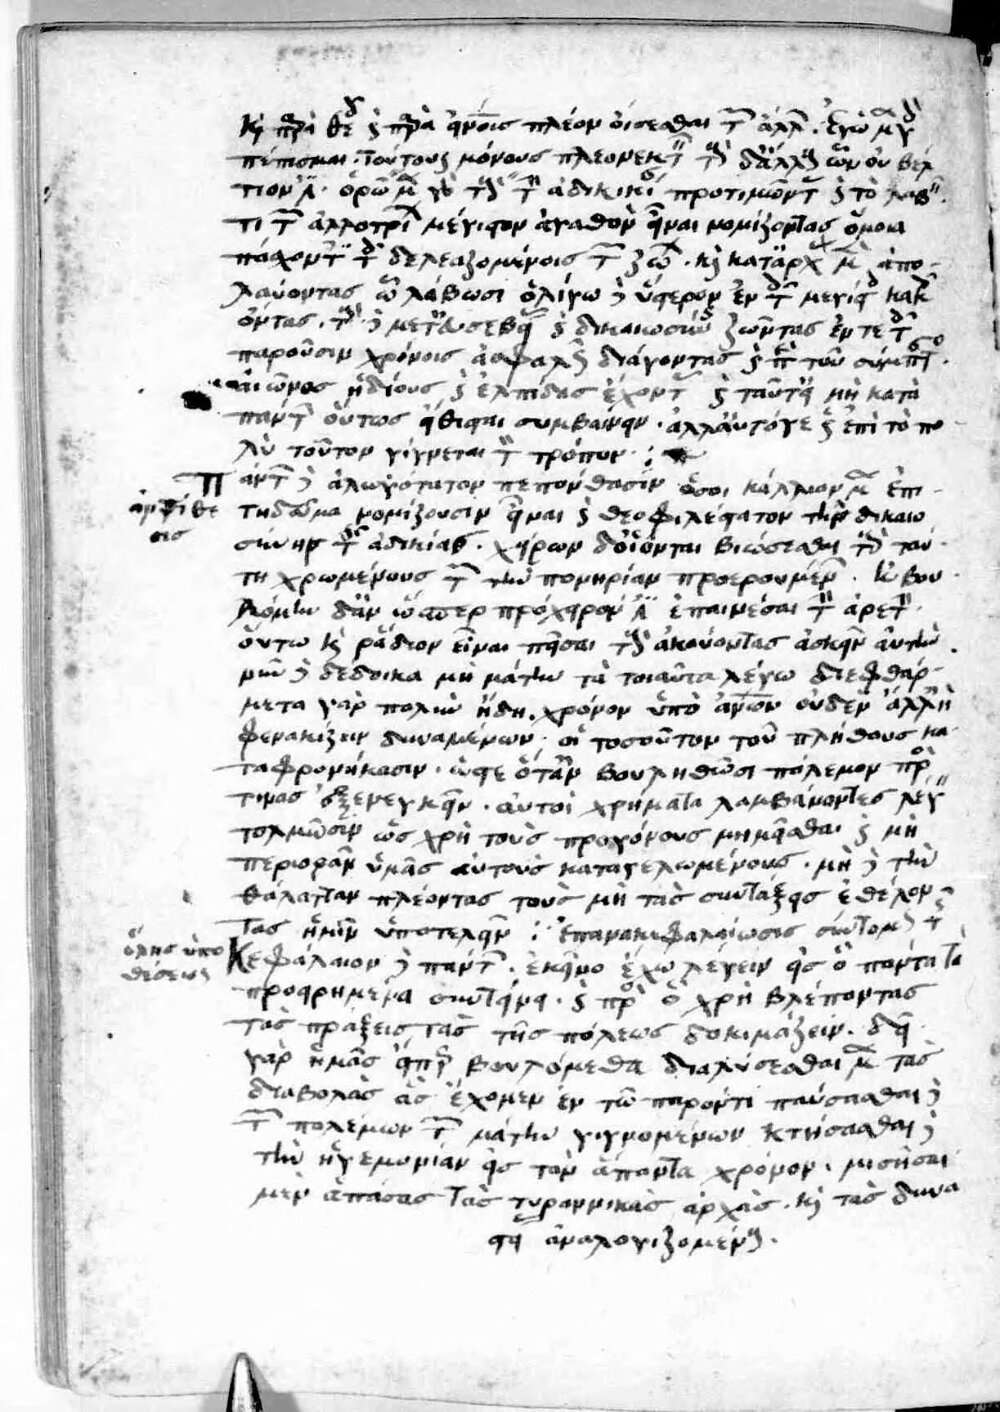 κ(αὶ) παρὰ θεῶν κ(αὶ) παρὰ ἀνοις πλέον οἴσεσθαι τῶν ἄλλ. ἐγὼ μὲν γὰρ
πέπισμαι. τούτους μόνους πλεονεκτεῖν τοὺς δἄλλους ὧν οὐ βέλ
τιον ἐστι. ὁρῶ μὲν γὰρ τοὺς τὴν ἀδικίαν προτιμῶντας κ(αὶ) τὸ λαβεῖν
τι τῶν ἀλλοτρίων μέγιστον ἀγαθὸν εἶναι νομίζοντας ὅμοια
πάσχοντας τοῖς δελεαζομένοις τῶν ζώων. κ(αὶ) κατἀρχὰς μὲν ἀπο
λαύοντας ὧν λάβωσι ὀλίγω δὲ ὕστερον ἐν τοῖς μεγίστοις κακοῖς
ὄντας. τοὺς δὲ μετεὐσεβείας κ(αὶ) δικαιοσύνης ζῶντας ἔν τε τοῖς
παροῦσιν χρόνοις ἀσφαλῶς διάγοντας κ(αὶ) περὶ τοῦ σύμπαντος
αἰῶνος ἡδίους κ(αὶ) ἐλπίδας ἔχοντας κ(αὶ) ταῦτα εἰ μὴ κατὰ
πάντων οὕτως εἴθισται συμβαίνειν. ἀλλἀυτόγε ὡς ἐπὶ τὸ πο
λὺ τοῦτον γίγνεται τὸν τρόπον :
Πάντων δὲ ἀλογότατον πεπόνθασιν ὅσοι κάλλιον μὲν ἐπι
ἀντίθε
τήδευμα νομίζουσιν εἶναι κ(αὶ) θεοφιλέστατον τὴν δικαιο
σις
σύνην τῆς ἀδικίας. χεῖρον δοἴονται βιώσεσθαι τοὺς ταύ
τη χρωμένους τῶν τὴν πονηρίαν προερουμένων. ἐβου
λόμην δἂν ὥσπερ πρόχειρον ἐστι ἐπαινέσαι τὴν ἀρετὴν.
οὕτω κ(αὶ) ῥάδιον εἶναι πεῖσαι τοὺς ἀκούοντας ἀσκεῖν αὐτὴν
νῦν δὲ δέδοικα μὴ μάτην τὰ τοιαῦτα λέγω διεφθάρ
μεθα γὰρ πολὺν ἤδη χρόνον ὑπὸ ἀνων οὐδὲν ἄλλἢ
φενακίζειν δυναμένων. οἳ τοσοῦτον τοῦ πλήθους κα
ταφρονήκασιν. ὥστε ὅτἂν βουληθῶσι πόλεμον πρός
τινας ἐξενεγκεῖν. αὐτοὶ χρήματα λαμβάνοντες λέγειν
τολμῶσιν ὡς χρὴ τοὺς προγόνους μιμεῖσθαι κ(αὶ) μὴ
περιορᾶν ἡμᾶς αὐτοὺς καταγελωμένους. μὴ δὲ τὴν
θάλατταν πλέοντας τοὺς μὴ τὰς συντάξεις ἐθέλον
τας ἡμῖν ὑποτελεῖν : Ἐπανακεφαλαίωσις σύντομος τῆς
ὅλης ὑπο
θέσεως
Κεφάλαιον δὲ πάντων. ἐκεῖνο ἔχω λέγειν εἰς ὃ πάντα τὰ
προειρημένα συντείνει. κ(αὶ) πρὸς ὃ χρὴ βλέποντας
τὰς πράξεις τὰς τῆς πόλεως δοκιμάζειν. δεῖ
γὰρ ἡμᾶς εἴπερ βουλόμεθα διαλύσεσθαι μὲν τὰς
διαβολὰς ἃς ἔχομεν ἐν τῶ παρόντι παύσασθαι δὲ
τῶν πολέμων τῶν μάτην γιγνομένων κτήσασθαι δὲ
τὴν ἡγεμονίαν εἰς τὸν ἅπαντα χρόνον. μισῆσαι
μὲν ἁπάσας τὰς τυραννικὰς ἀρχὰς. κ(αὶ) τὰς δυνα
στείας ἀναλογιζομένους.